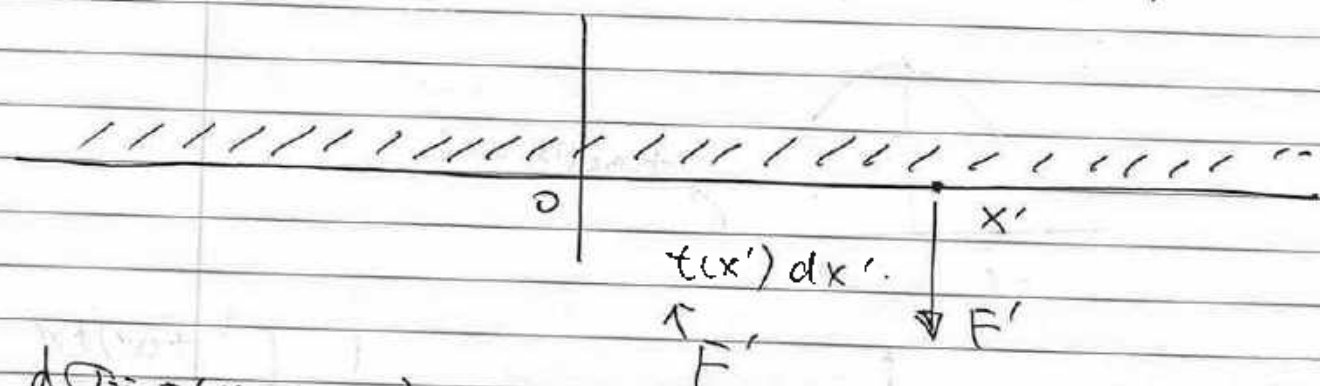 O
x'
t(x') dx'.
F'
F'